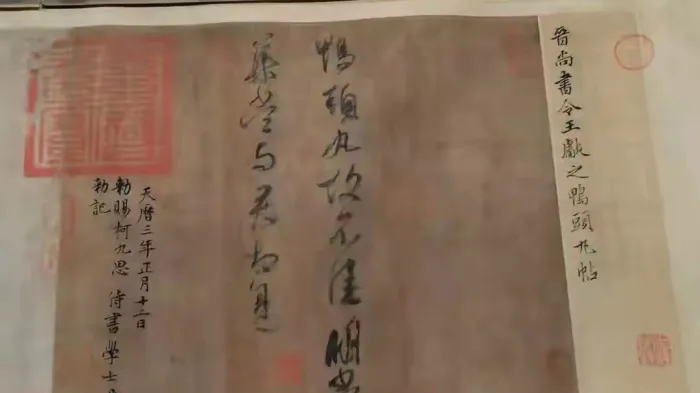 晉尚書令王獻之鴨頭丸帖
鴨頭丸故不佳明當
集當与君相見
天曆三年正月十二日
勅賜柯九思 侍書學士
勅記